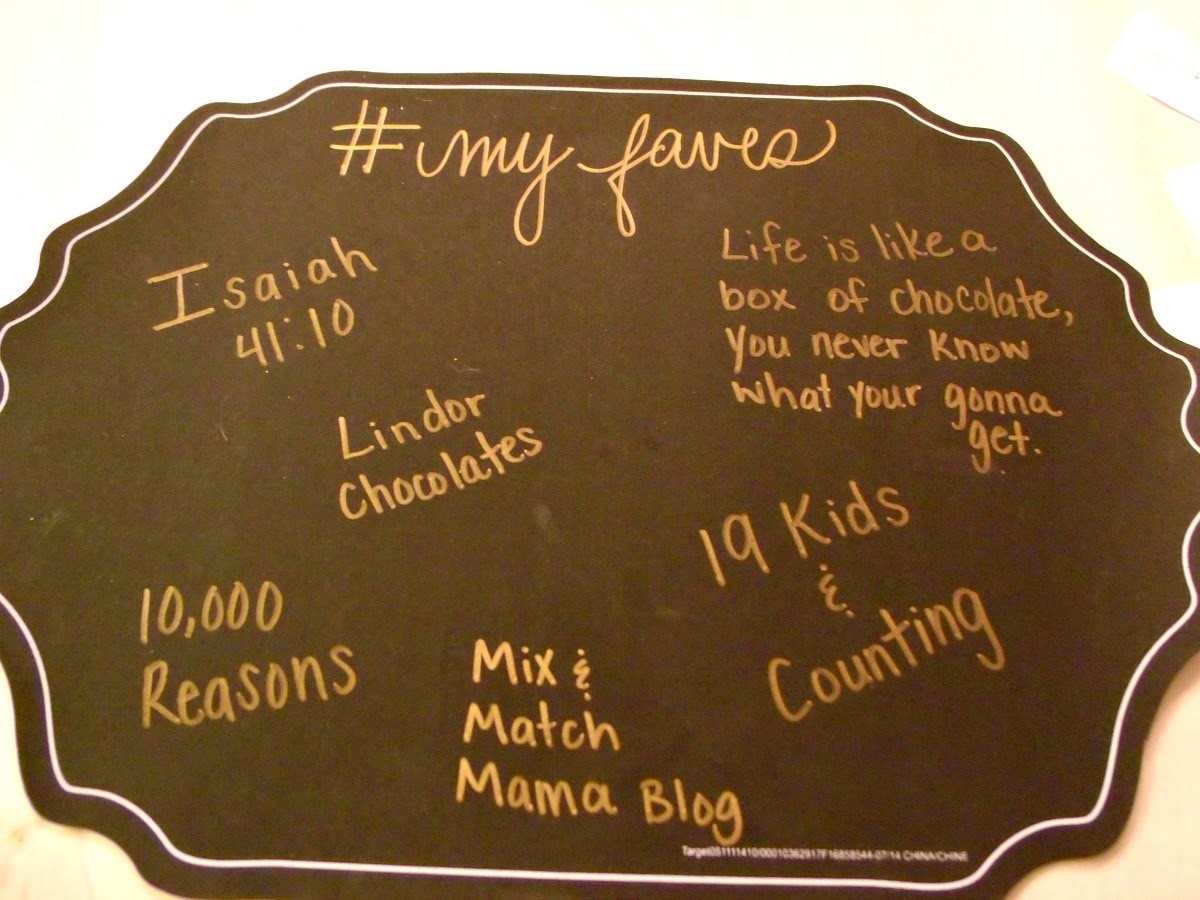 #my faves
Isaiah
41:10
Life is like a
box of chocolate,
you never know
what your gonna
get.
Lindor
Chocolates
19 Kids
&
Counting
10,000
Reasons
Mix &
Match
Mama Blog